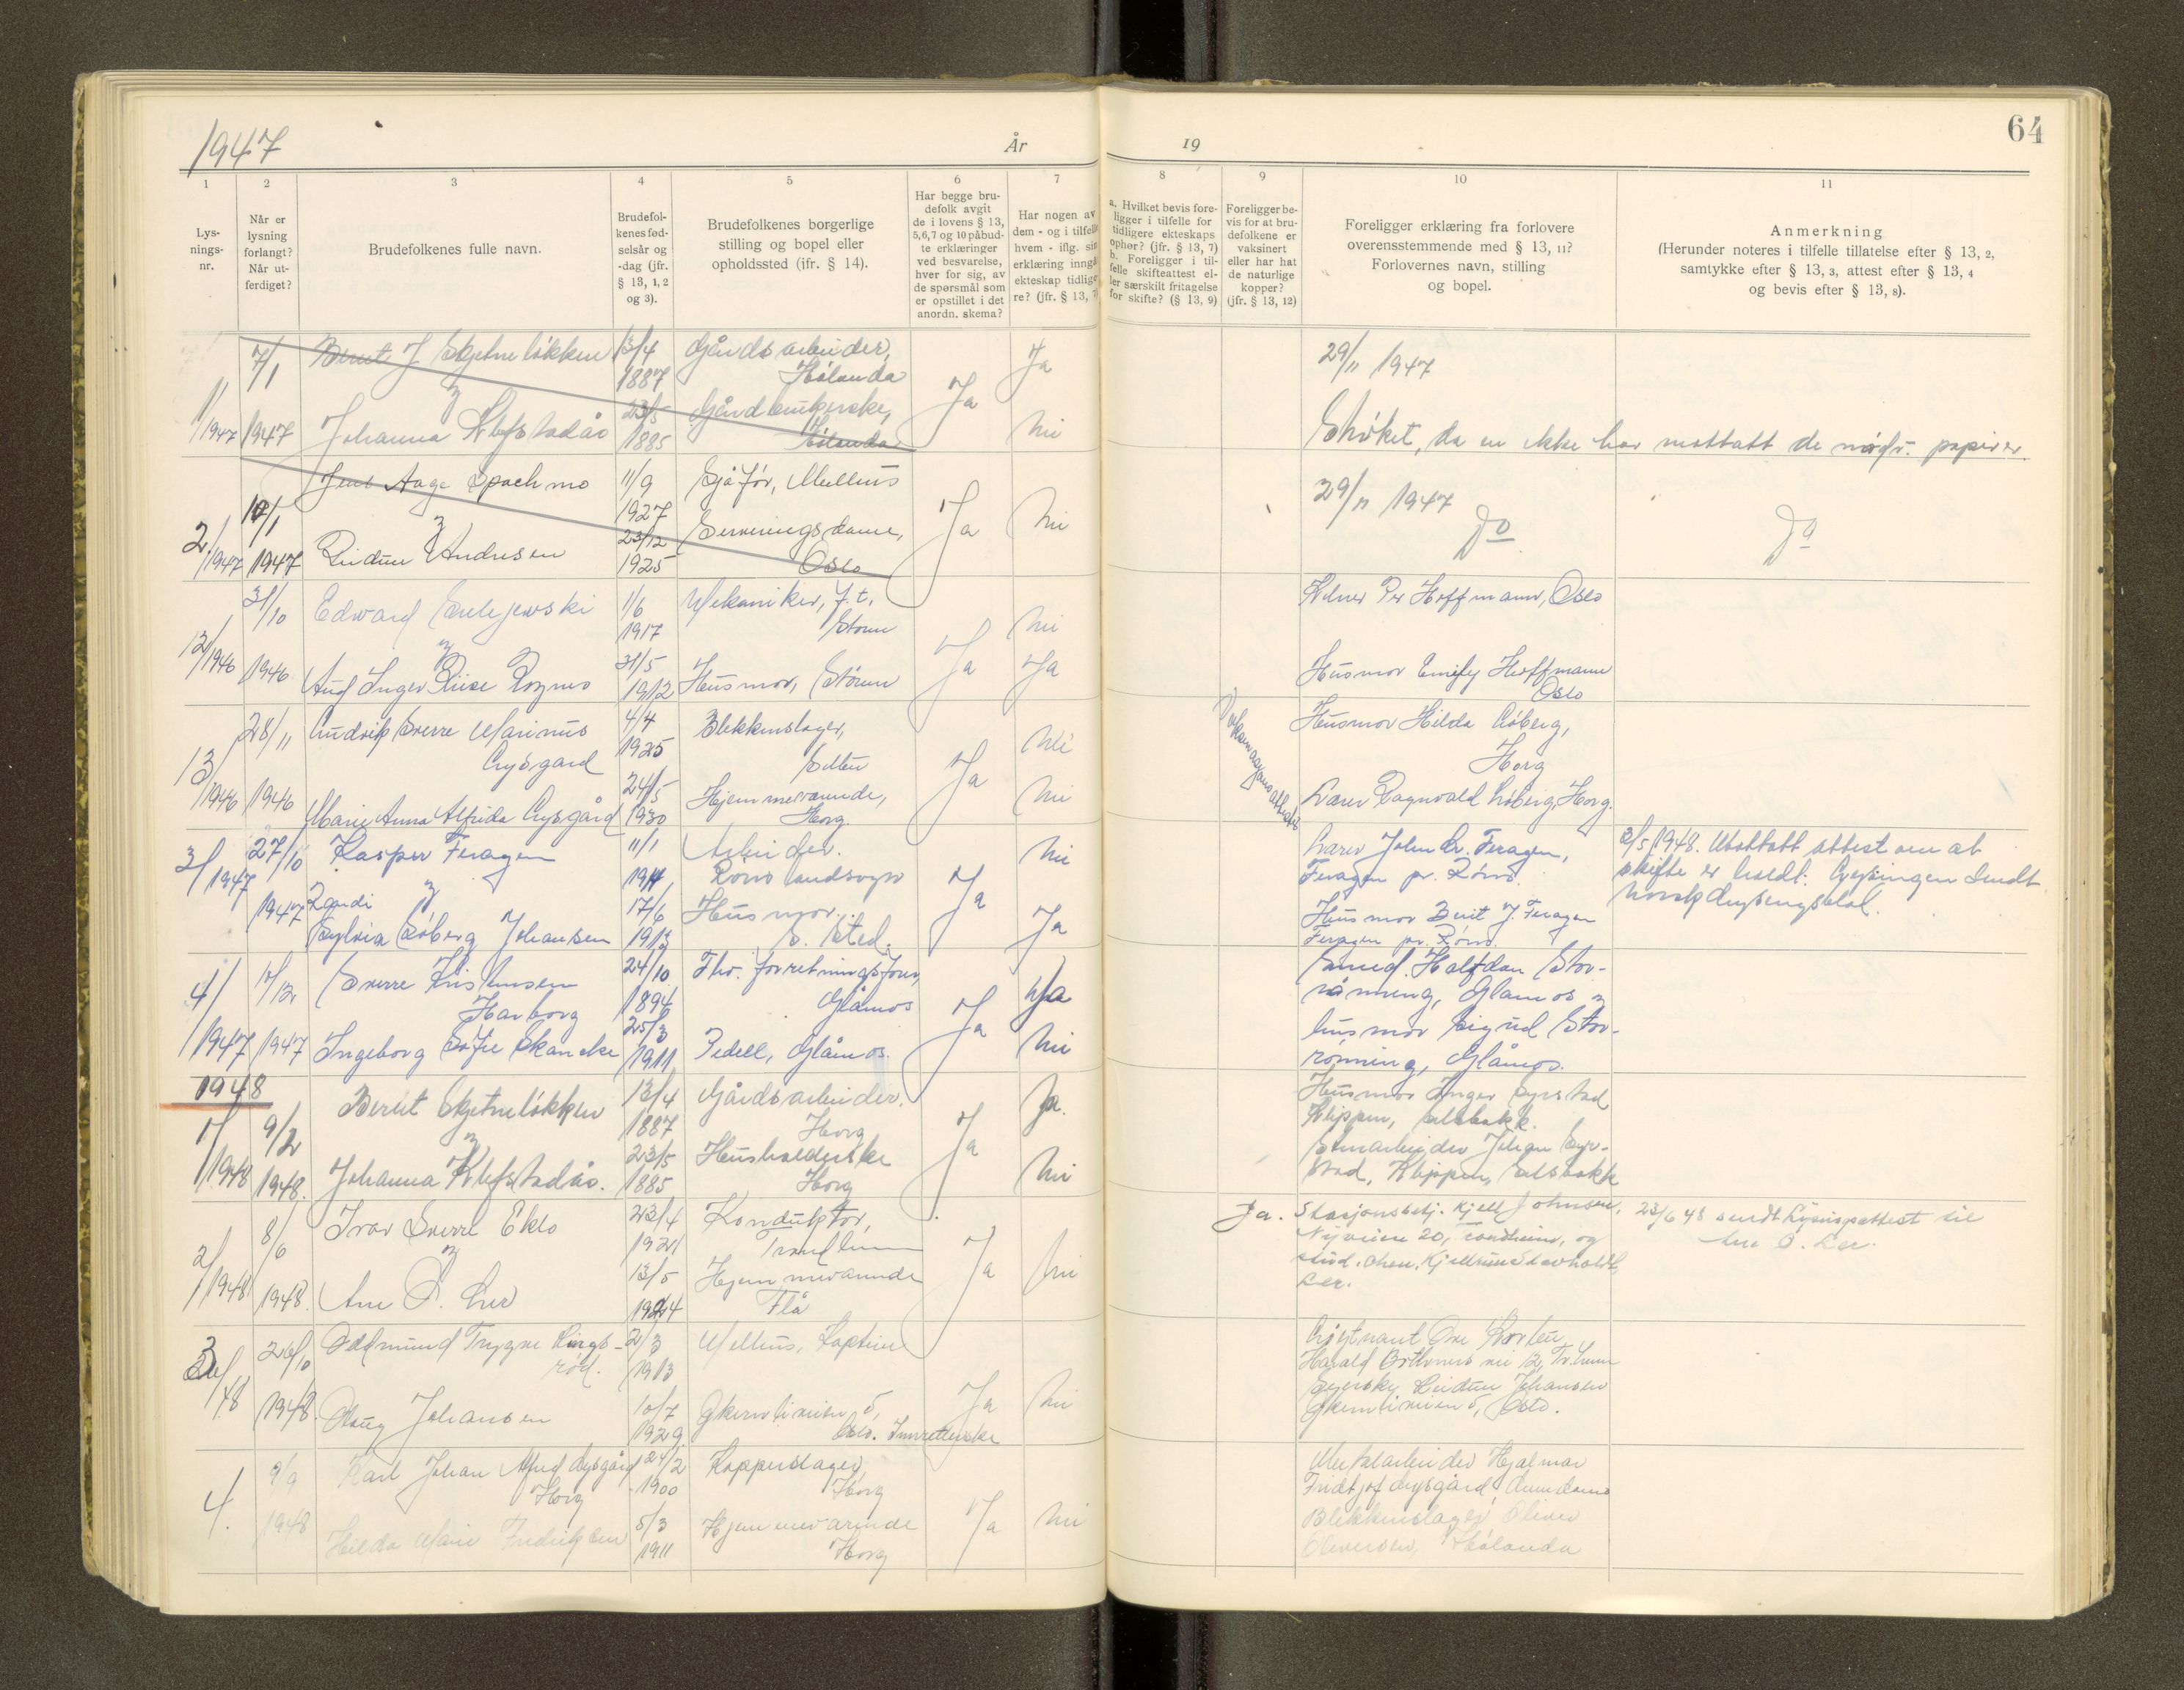 1947
År
19
64
1
2
3
4
5
6
7
8
9
10
11
Lys-
nings-
nr.
Når er
lysning
forlangt?
Når ut-
ferdiget?
Brudefolkenes fulle navn.
Brudefol-
kenes fød-
selsår og
-dag (jfr.
§ 13, 1, 2
og 3).
Brudefolkenes borgerlige
stilling og bopel eller
opholdssted (ifr. § 14).
Har begge bru-
defolk avgit
de i lovens § 13,
5,6,7 og 10 påbud-
te erklæringer
ved besvarelse,
hver for sig, av
de spørsmål som
er opstillet i det
anordn. skema?
Har nogen av
dem - og i tilfelle
hvem - iflg. sin
erklæring inngå
ekteskap tidlige
re? (jfr. § 13, 7)
a. Hvilket bevis fore-
ligger i tilfelle for
tidligere ekteskaps
ophør? (jfr. § 13, 7)
b. Foreligger i til-
felle skifteattest el-
ler særskilt fritagelse
for skifte? (§ 13, 9)
Foreligger be-
vis for at bru-
defolkene er
vaksinert
eller har hat
de naturlige
kopper?
(jfr. § 13, 12)
Foreligger erklæring fra forlovere
overensstemmende med § 13, 11?
Forlovernes navn, stilling
og bopel.
Anmerkning
(Herunder noteres i tilfelle tillatelse efter § 13, 2,
samtykke efter § 13, 3, attest efter § 13, 4
og bevis efter § 13, 8).
1/1947
7/1 1947
Berut J Skjetneløkken
Johanna Klefstadås
13/4 1887
23/5 1885
Gårdsarbeider,
Hølonda
Gårdbrukerske,
Hølonda
Ja
Ja
Nei
29/11 1947
Strøket, da en ikke har mottatt de nødv. papirer.
2/1947
10/1 1947
Jens Aage Spachmo
Reidun Andresen
11/9 1927
23/12 1925
Sjåfør, Melhus
Serveringsdame,
Oslo
Ja
Nei
29/11 1947
Do
Do
12/1946
31/10 1946
Edward
Aud Inger Riise Rognes
1/6 1917
31/5 1912
Mekaniker, f.t.
Støren
Husmor, Støren
Ja
Nei
Ja
Per Hoffmann, Oslo
Husmor Emily Hoffmann
Oslo
13/1946
28/11 1946
Sverre Marinus
Lysgård
Marie Anna Alfrida Lysgård
4/4 1925
24/5 1930
Blikkenslager,
Hjemmeværende,
Horg
Ja
Nei
Nei
Husmor Hilda Løberg,
Horg
Lærer Ragnvald Løberg, Horg.
3/1947
27/10 1947
Kasper Feragen
Sylvia Solberg Johansen
11/1
17/6
Arbeider.
Røros landsogn
Husmor.
S. sted.
Ja
Nei
Ja
Feragen,
Feragen pr. Røros.
Husmor Berit J. Feragen
Feragen pr. Røros.
3/5 1948. Mottatt attest om at
skifte er holdt. Lysningen sendt
4/1947
1947
Sverre Kristensen
Harborg
Ingeborg Sofie Skancke
24/10 1894
25/3 1911
Fhv. forretningsfører,
Glåmos
Pedell, Glåmos.
Ja
Ja
Nei
Halfdan Stor-
rønning, Glåmos
husmor Sigrid Stor-
rønning, Glåmos.
1948
1/1948
9/2 1948
Berut Skjetneløkken
Johanna Klefstadås.
13/4 1887
23/5 1885
Gårdsarbeider.
Horg
Husholderske
Horg
Ja
Ja.
Nei
Husmor Inger Syrstad
Klippen, Selsbakk.
Johan Syr-
stad, Klippen, Selsbakk
2/1948
8/6 1948.
Ivar Sverre Eklo
Ane P. Ler
23/4 1921
13/5 1924
Konduktør,
Trondheim
Hjemmeværende
Flå
Ja
Nei
Ja.
Stasjonsbetj. Kjell Johnsen,
Nyveien 20, Trondheim, og
Ler.
23/6 48 sendt lysningsattest til
Ane P. Ler.
3/48
26/10 1948.
Oddmund Trygve Lings-
rød.
Johansen
2/3 1913
10/7 1929
Melhus, Kaptein
5,
Oslo.
Ja
Nei
Løytnant
Reidun Johansen
5, Oslo.
4.
9/9 1948
Karl Johan Alfred Lysgård
Horg
Hilda Marie Fredriksen
24/2 1900
5/3 1911
Kopperslager,
Horg
Hjemmeværende
Horg
Ja
Nei
Metalarbeider Hjalmar
Fridtjof Lysgård,
Blikkenslager Oliver
Oliversen, Hølonda